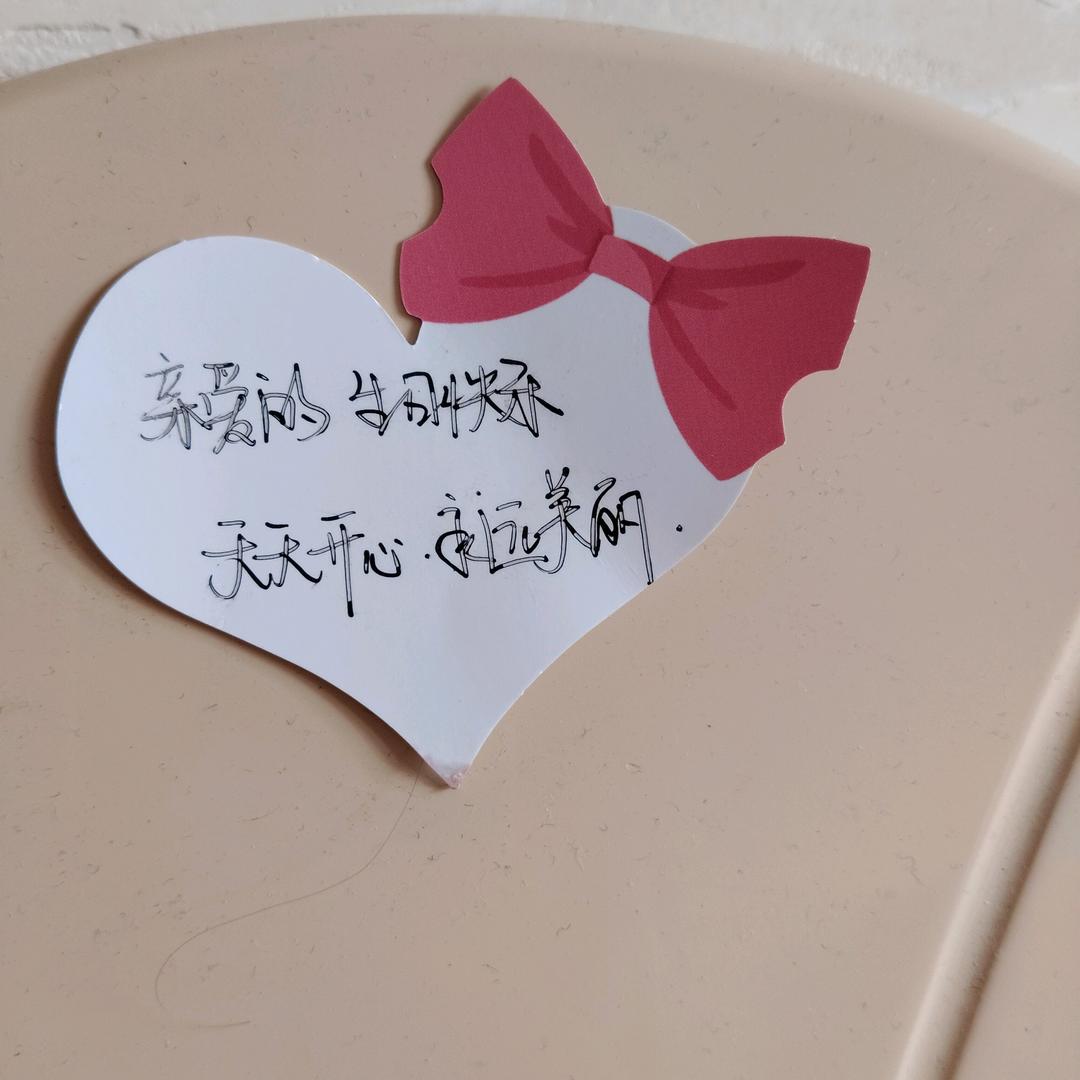 亲爱的 生日快乐
天天开心.永远美丽.